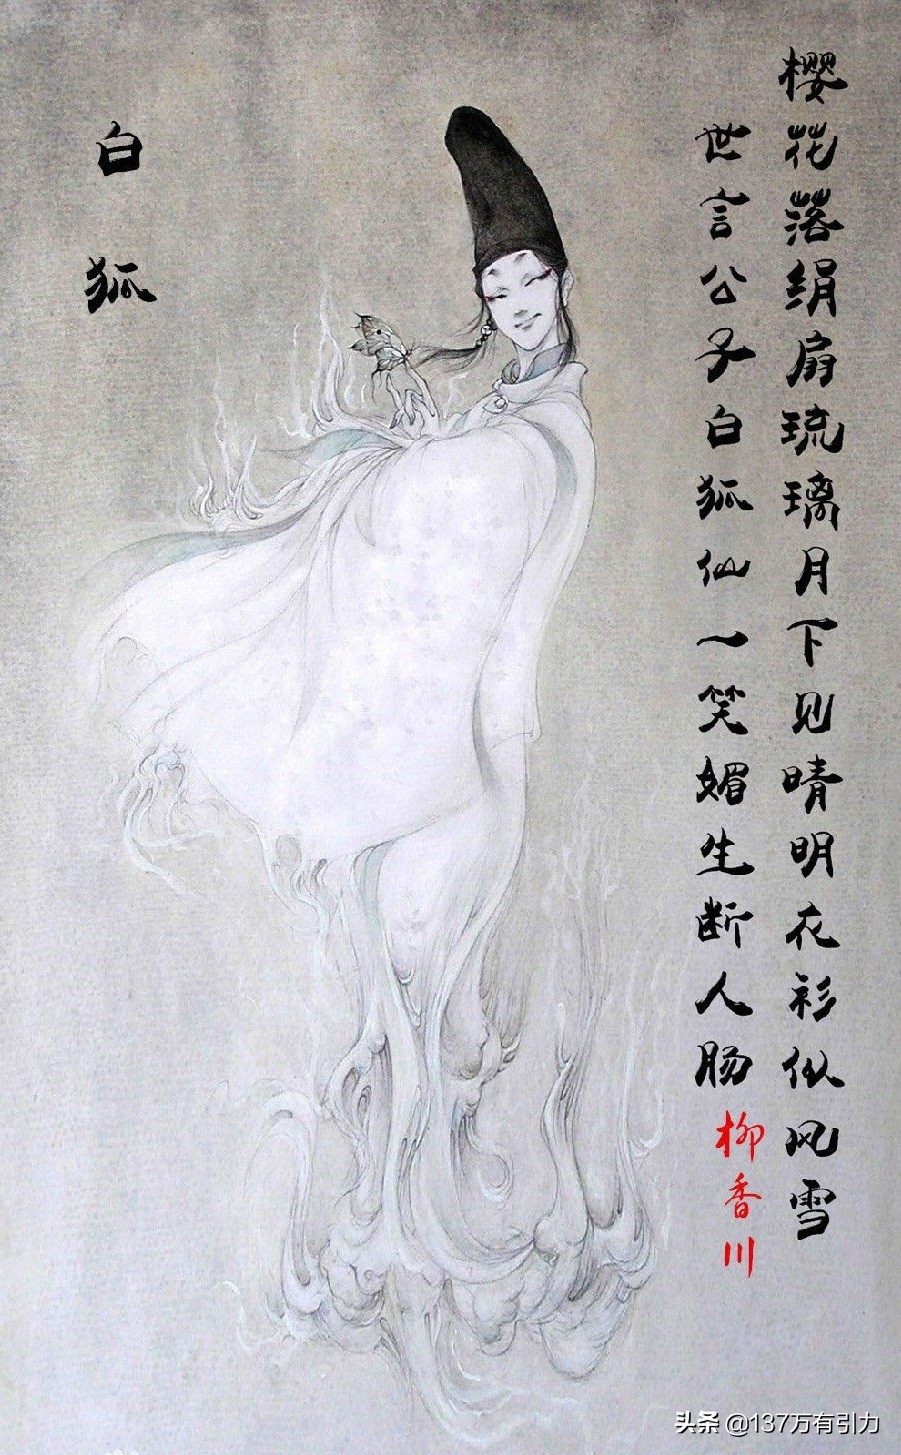 樱花落绢扇琉璃月下见晴明衣衫似风雪
世言公子白狐仙一笑媚生断人肠
柳香川
白狐
头条 @137万有引力